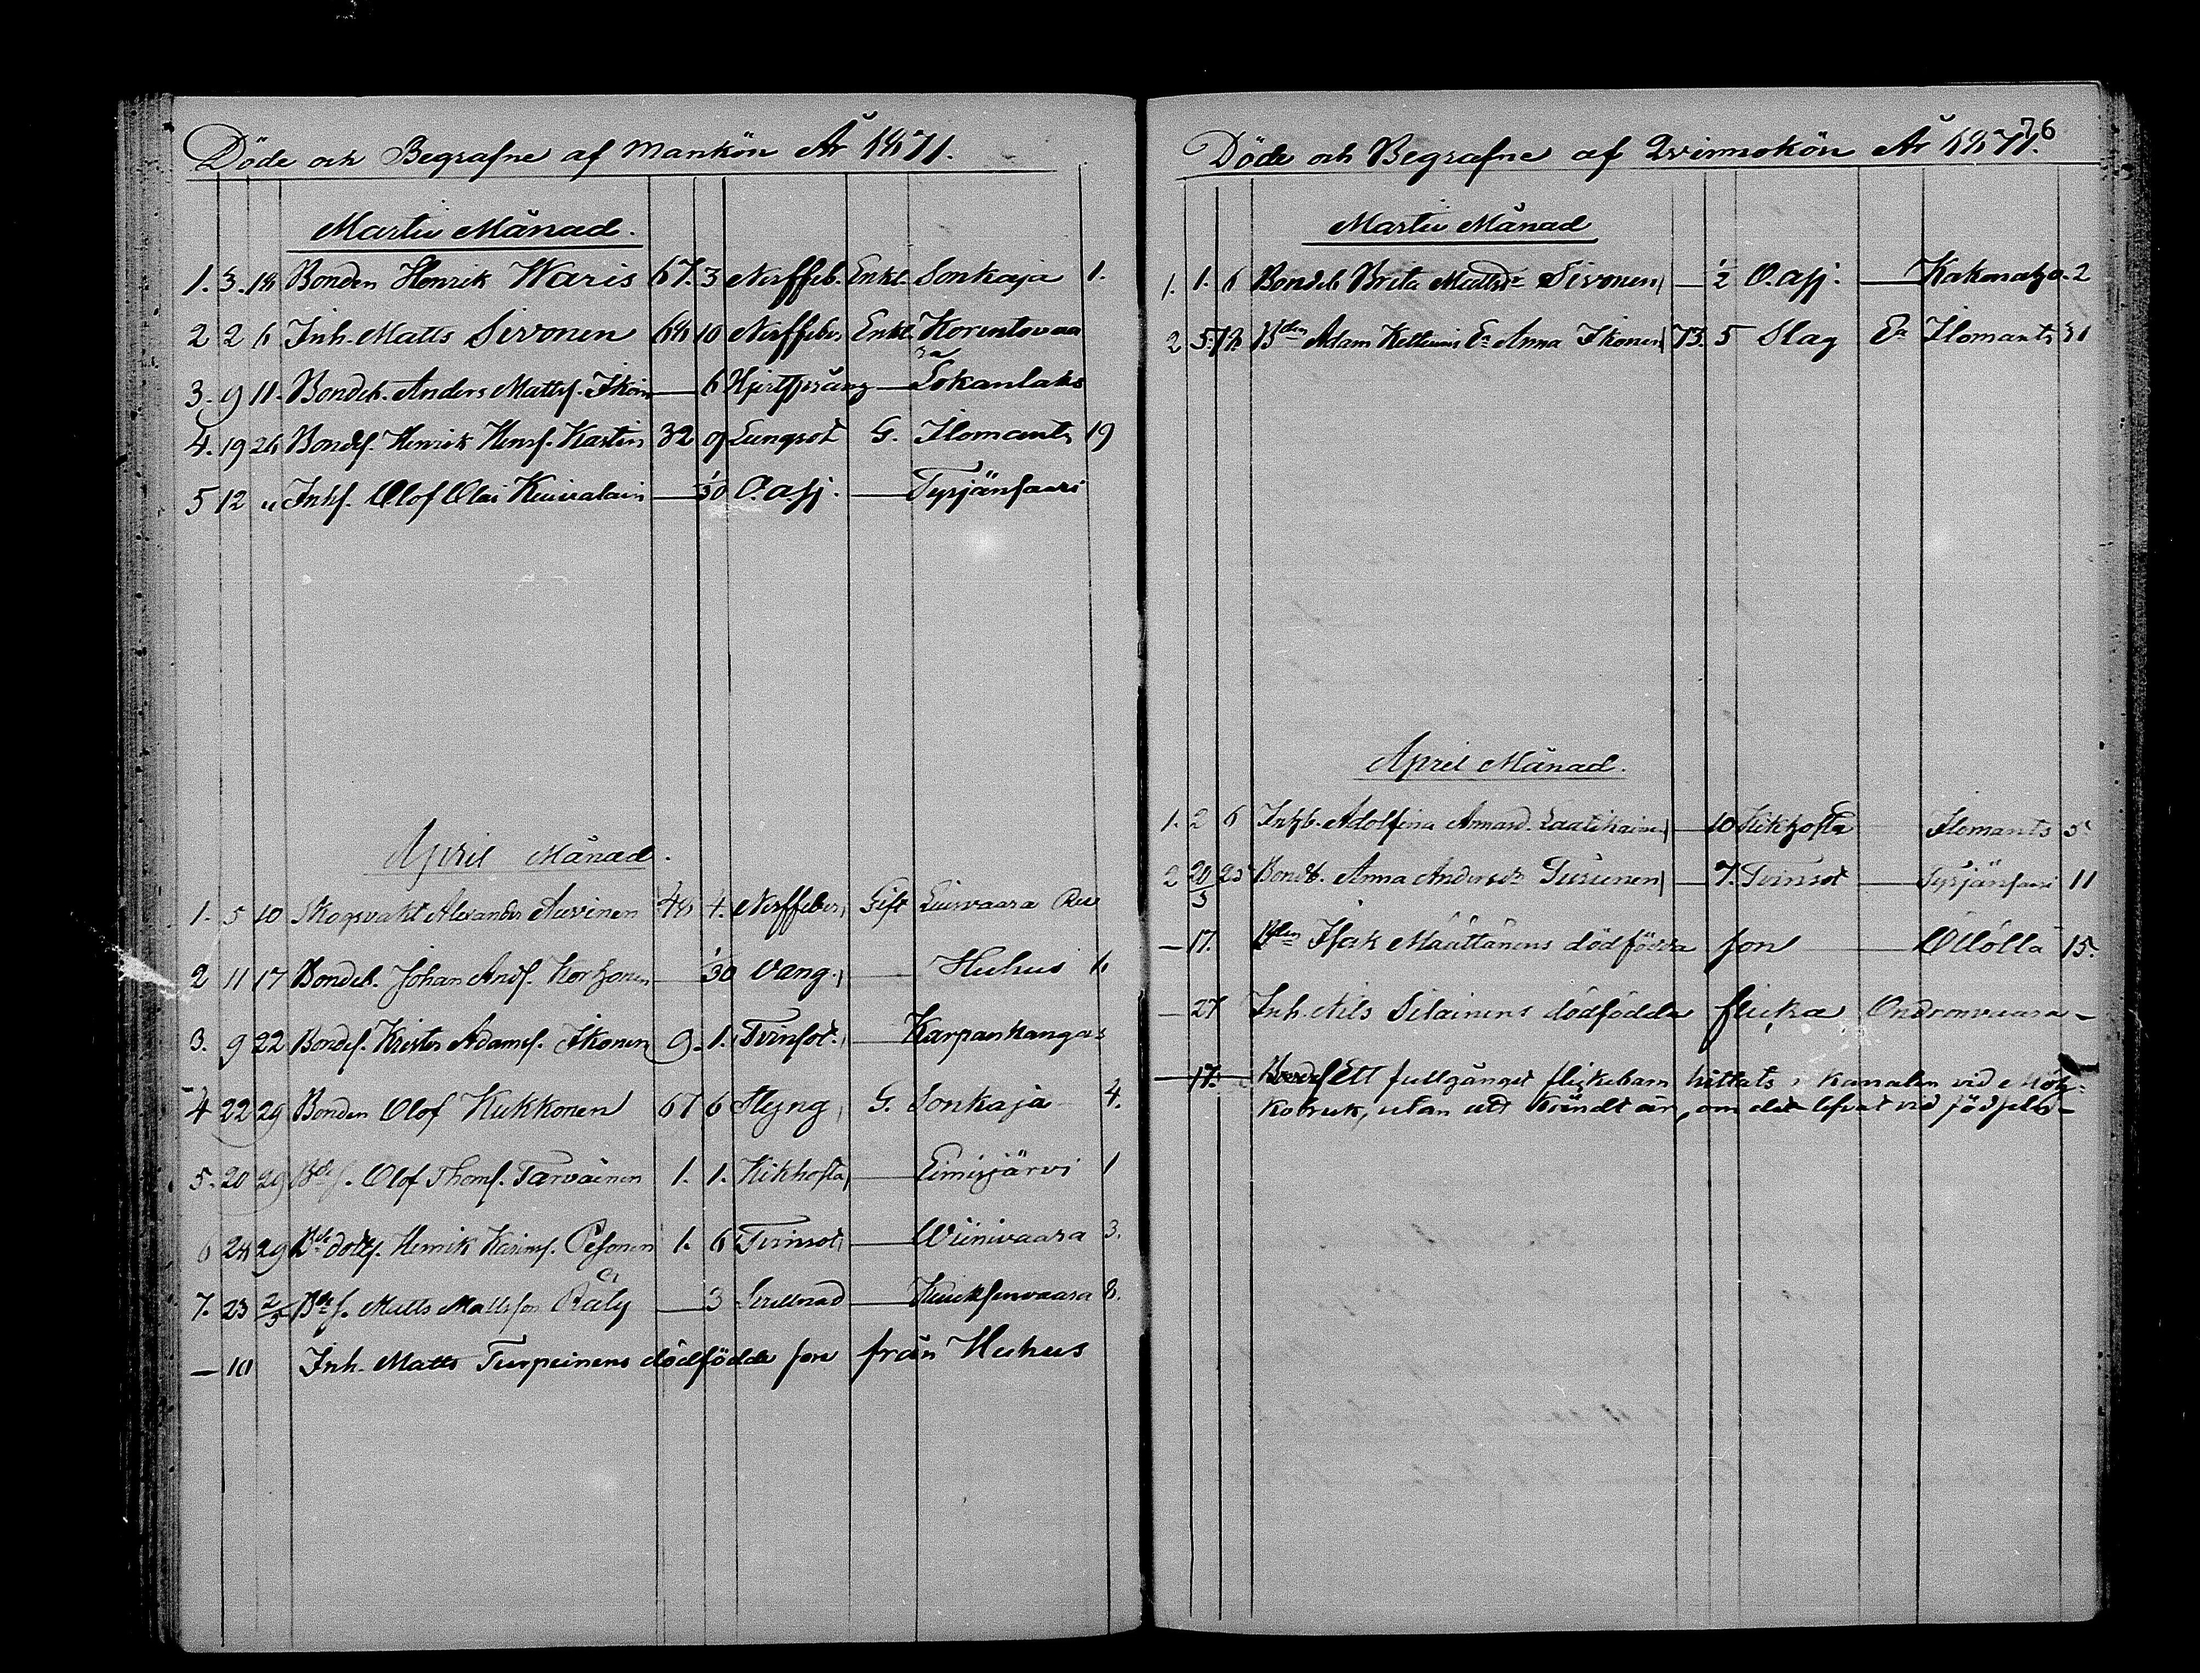 Döde och Begrafne af Mankön År 1871.
Martii Månad.
1. 3. 18 Bonden Henrik Waris 67. 3 Nerffeb. Enkl. Sonkaja 1.
2 2 6 Inh. Matts Sivonen 68 10 Nerffeber Enkl. Korentovaa
ra
3. 9 11. Bondeb. Anders Mattsf. Ikoin — 6 Hjertsprång — Sokanlaks
4. 19 26 Bondes. Henrik Hensf. Kastin 32 9 Lungsot G. Ilomants 19
5 12 " Inhs. Olof Olai Kuivalain — 1/30 O. asj. — Tyrjänsaari
April Månad.
1. 5 10 Skogsvakt Alexander Auvinen 48 4. Nerffeber Gift Liusvaara
2 11 17 Bondeb. Johan Andf. Korhonen — 1/30 Oang. — Huhus 6
3. 9 22 Bondes. Krister Adamsf. Ikonen 9. 1. Tvinsot. — Karpankangas
4 22 29 Bonden Olof Kukkonen 67 6 Styng G. Sonkaja 4.
5. 20 29 Bdes. Olof Thomf. Tarvainen 1. 1. Kikhosta — Eimisjärvi 1
6 24 29 Bde dotts. Henrik Karinsf. Pesonen 1. 6 Tvinsot — Wiinivaara 3.
7. 23 2/5 Bdes. Matts Mattsson Räty — 3 — Kuuksenvaara 8.
— 10 Inh. Matts Turpeinens dödfödde son från Huhus
76
Döde och Begrafne af Qvinnokön År 1871.
Martii Månad
1. 1. 6 Bondeb. Brita Mattsdr Sivonen — 1/2 O. asj. — Kakonaho 2
2 5. 12. Bden Adam Kettunis Ea Anna Ikonen 73. 5 Slag Ea Ilomants 31
April Månad.
1. 2 6 Inhb. Adolfina Annasd. Laatikainen — 10 Kikhosta Ilomants 5
2 20/3 25 Bondb. Anna Andersdr Turunen — 7. Tvinsot — Tyrjänsaari 11
— 17. Bden Isak Määttänens dödfödda son — Öllölä 15.
— 27 Inh. Nils Silainens dödfödda flicka Ondronvaara —
— 17. — Ett fullgånget flickebarn hittats i kanalen vid Möh-
kö bruk, utan att kändt är, om det lefvat vid födseln —